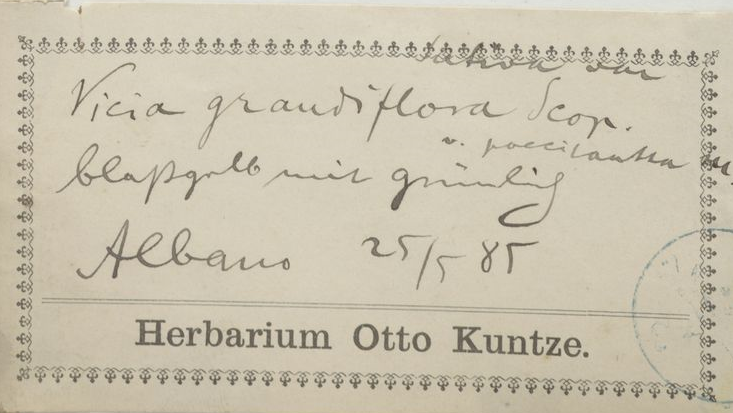 sativa var
Vicia grandiflora Scop.
v. poecilantha m.
blaßgelb mit grünlich
Albano 25/5 85
Herbarium Otto Kuntze.